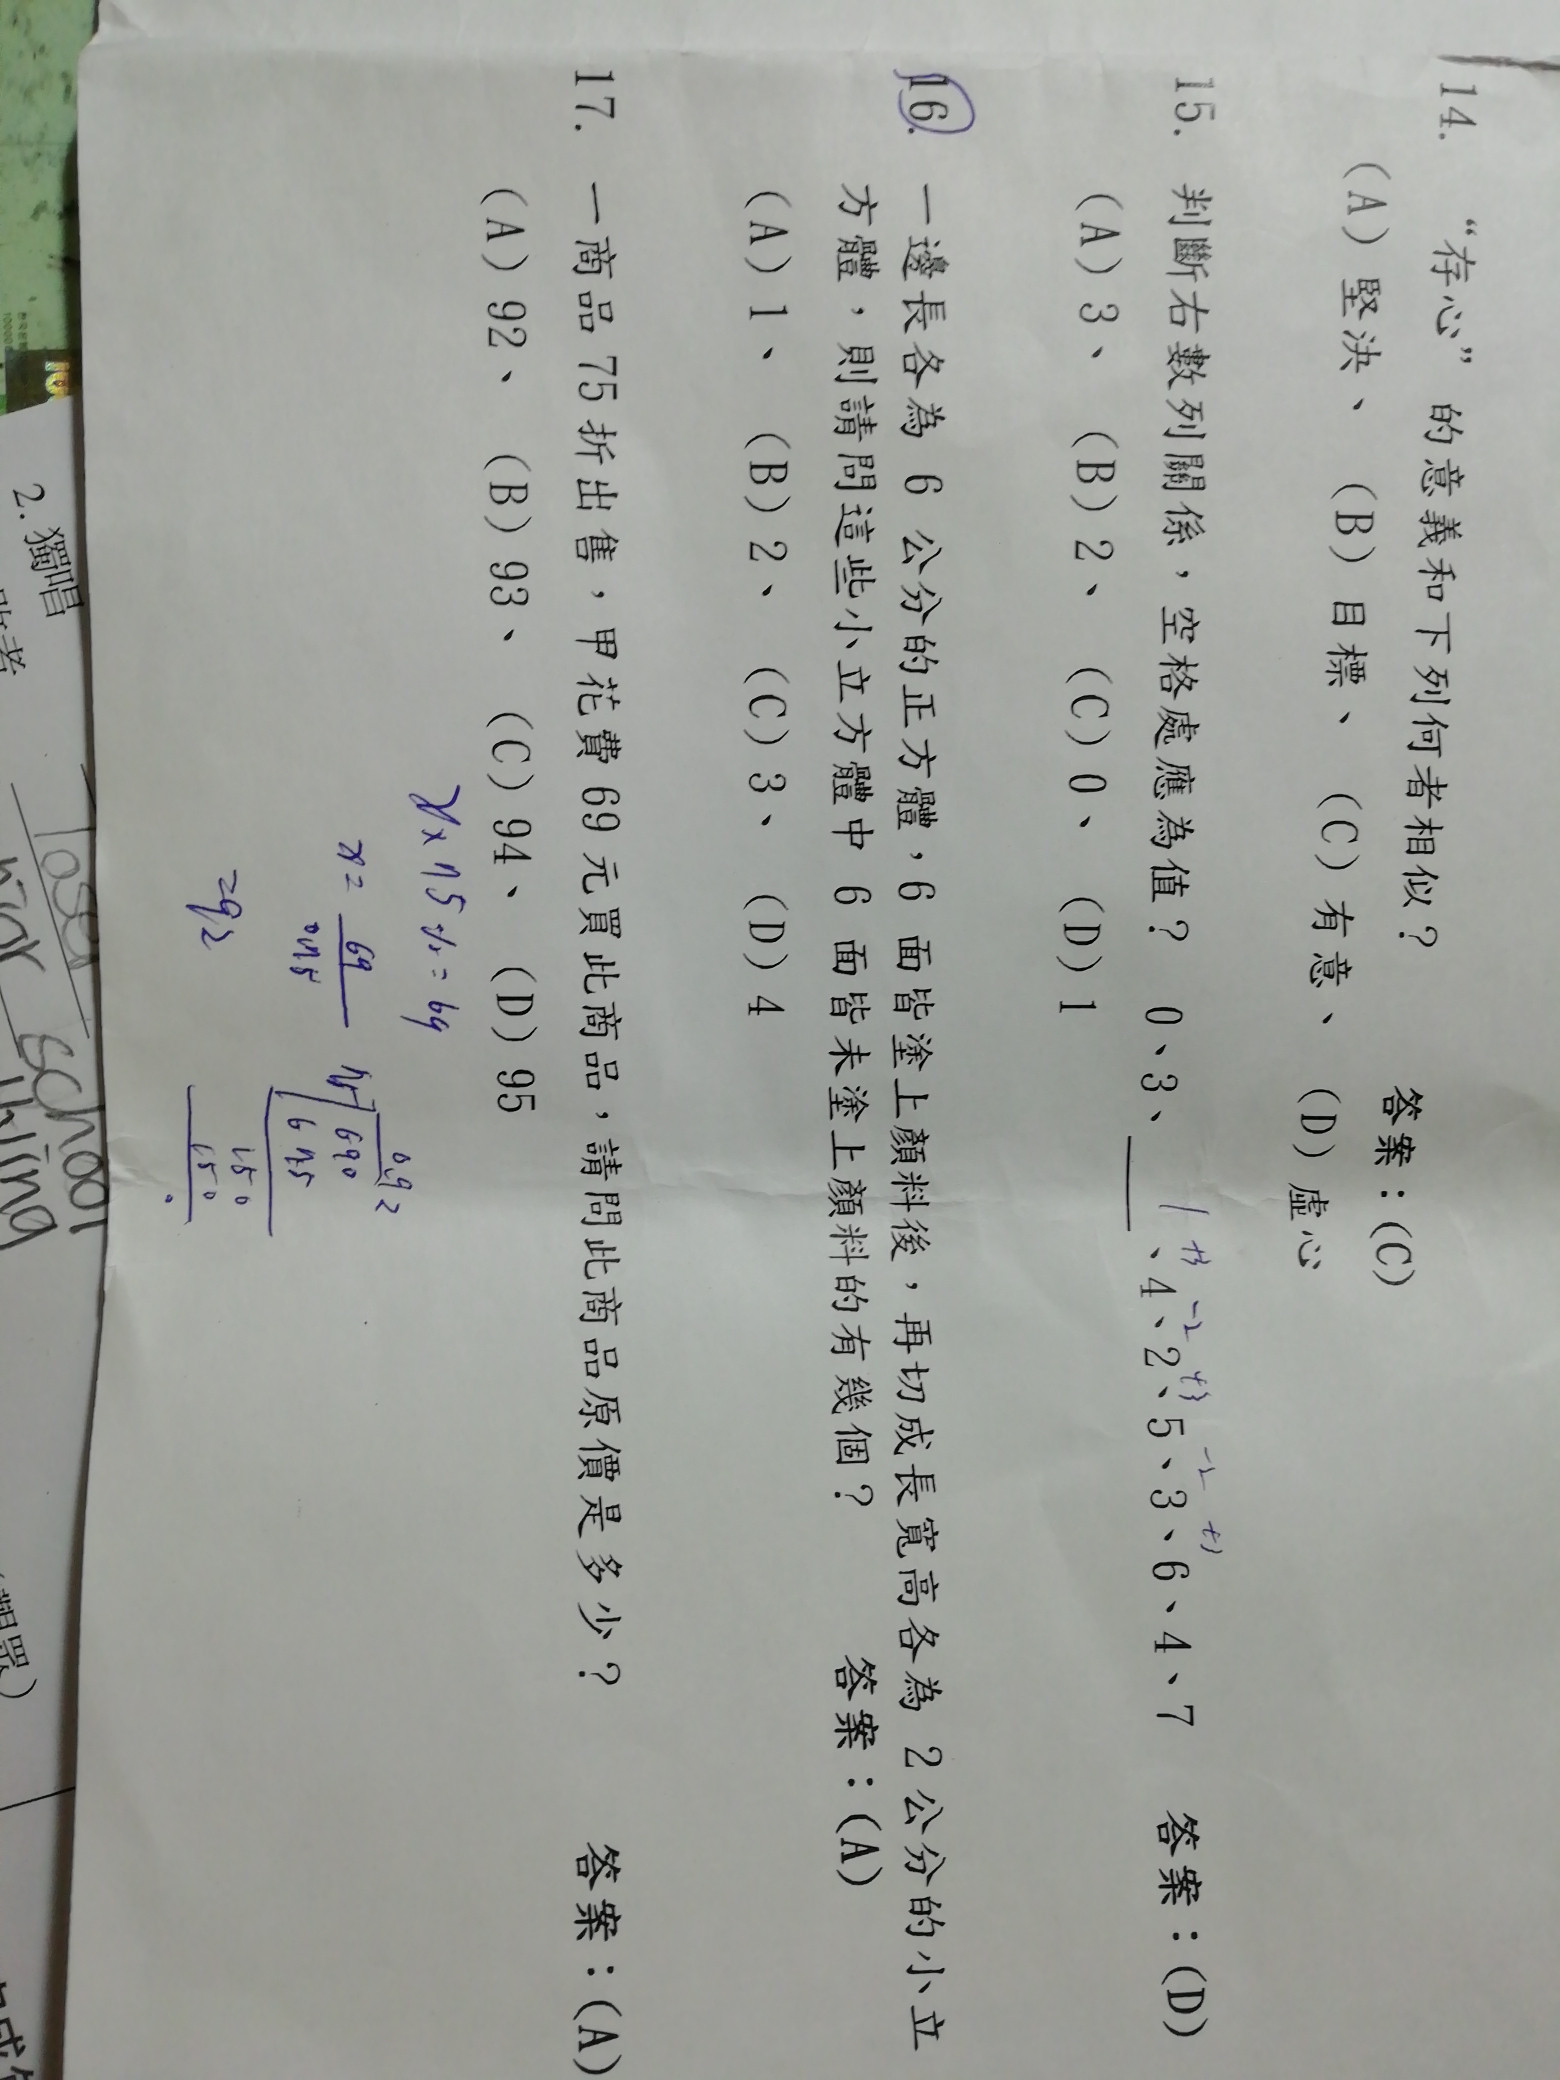 14. “存心”的意義和下列何者相似？ 答案：(C)
(A)堅決、 (B)目標、 (C)有意、 (D)虛心
15. 判斷右數列關係，空格處應為值？ 0、3、____、4、2、5、3、6、4、7 答案：(D)
1 +3 -2 +3 -2 +3
(A)3、 (B)2、 (C)0、 (D)1
16. 一邊長各為 6 公分的正方體，6 面皆塗上顏料後，再切成長寬高各為 2公分的小立
方體，則請問這些小立方體中 6 面皆未塗上顏料的有幾個？ 答案：(A)
(A)1、 (B)2、 (C)3、 (D)4
17. 一商品75折出售，甲花費69元買此商品，請問此商品原價是多少？ 答案：(A)
(A)92、 (B)93、 (C)94、 (D)95
x×75%=69
x=69
0.75
=92
0.92
75 690
675
150
150
2.獨唱
loser
school
thing